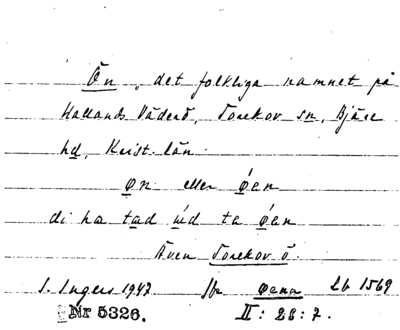 Ön, det folkliga namnet på
Hallands Väderö, Torekov sn, Bjäre
hd, Krist. län.
øn eller ǿen
di ha tæd úd ta ǿen
Även Torekov ö.
I. Ingers 1947 jfr øenn Lb 1569
Nr 5326. II: 28: 7.